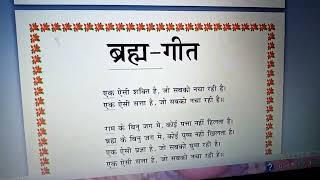 ब्रह्म-गीत
एक ऐसी शक्ति है, जो सबको नचा रही है।
एक ऐसी सत्ता है, जो सबको नचा रही है॥
राम के बिनु जग में, कोई पत्ता नहीं हिलता है।
ब्रह्म के बिनु जग में, कोई पुष्प नहीं खिलता है।
एक ऐसी प्रज्ञा है, जो सबको घुमा रही है।
एक ऐसी सत्ता है, जो सबको नचा रही है॥